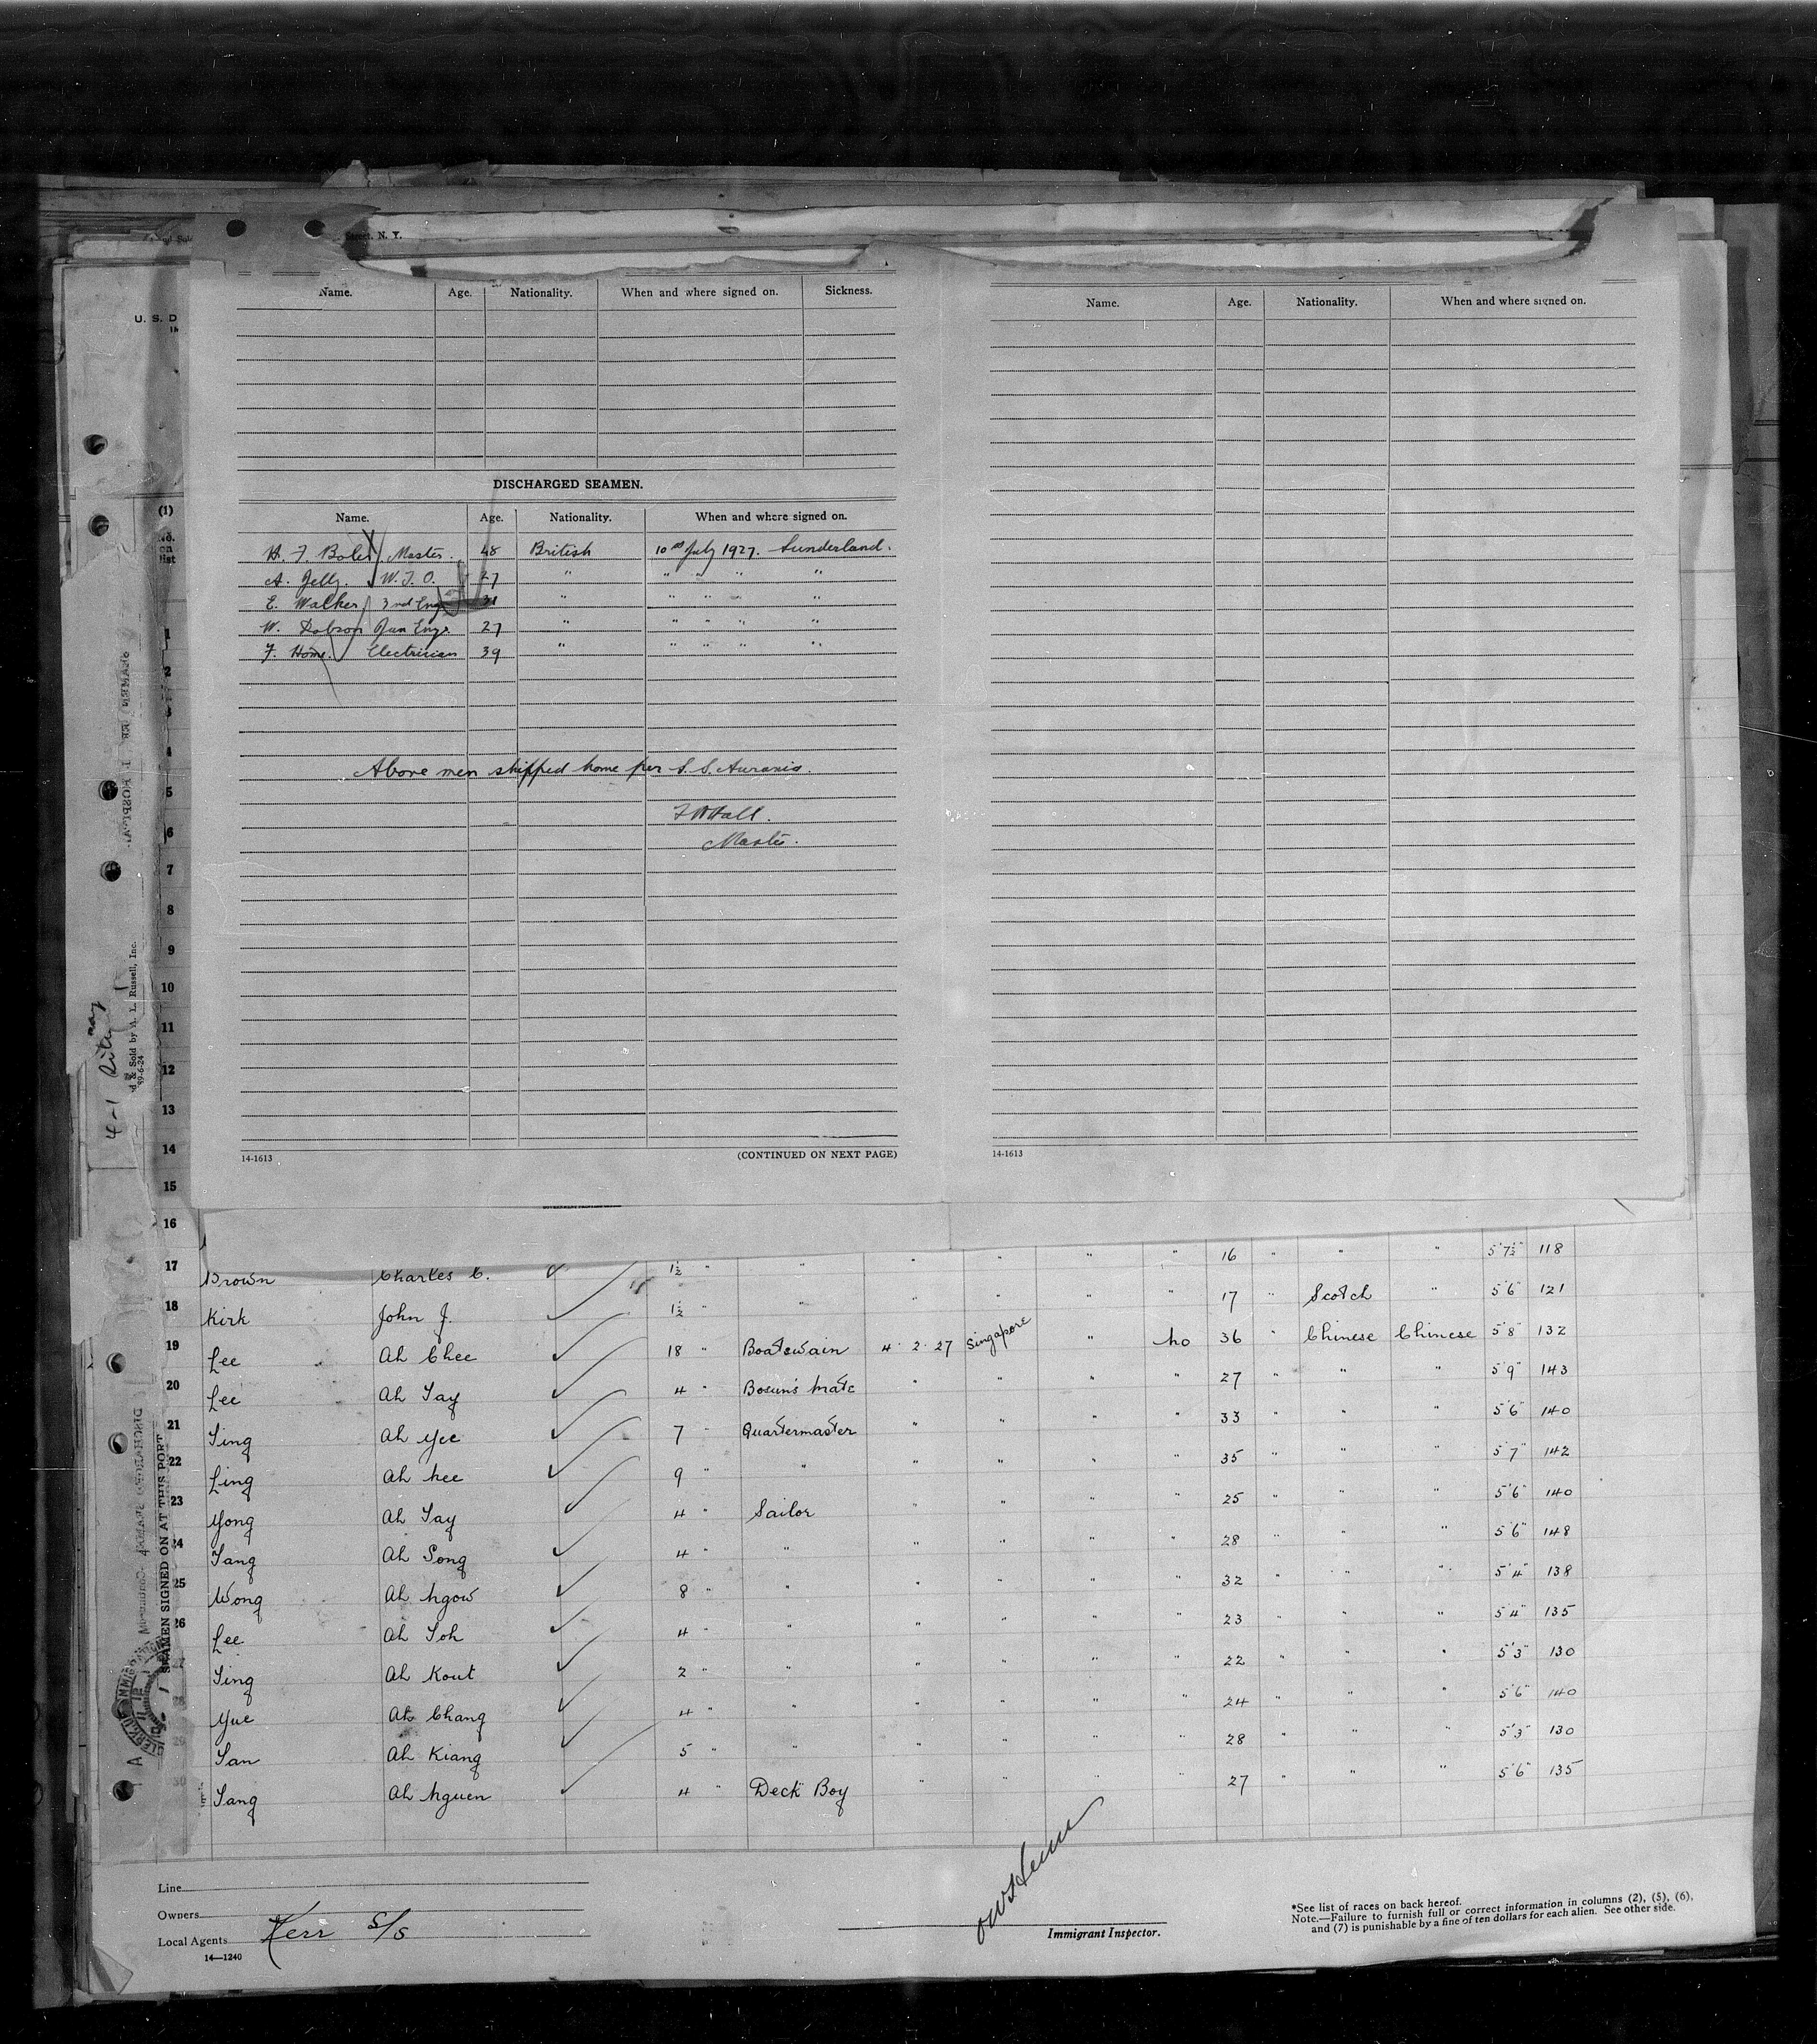 Street, N. Y.
U. S. D
Name. Age. Nationality. When and where signed on. Sickness.
Name. Age. Nationality. When and where signed on.
DISCHARGED SEAMEN.
Name. Age. Nationality. When and where signed on.
Master. 48 British 10th July 1927. Sunderland.
A. Jelly. W.T.O. 27 " " " " "
E. Walker 3rd Eng 31 " " " " "
W. Dobson Jun Engr. 27 " " " " "
F. Home. Electrician 39 " " " " "
Above men shipped home per S.S. Aurania.
Hall.
Master.
14-1613 (CONTINUED ON NEXT PAGE)
14-1613
(1)
No. on list
1
2
3
4
5
6
7
8
9
10
11
12
13
14
15
16
d & Sold by A. L. Russell, Inc.
SEAMEN SIGNED ON AT THIS PORT
17 Brown Charles C. 1½ " " " " " " 16 " " " 5'7½" 118
18 Kirk John J. 1½ " " " " " " 17 " Scotch " 5'6" 121
19 Lee Ah Chee 18 " Boatswain 4. 2. 27 Singapore " No 36 " Chinese Chinese 5'8" 132
20 Lee Ah Tay 4 " Bosun's Mate " " " " 27 " " " 5'9" 143
21 Ting Ah Yee 7 " Quartermaster " " " " 33 " " " 5'6" 140
22 Ling Ah Nee 9 " " " " " " 35 " " " 5'7" 142
23 Yong Ah Tay 4 " Sailor " " " " 25 " " " 5'6" 140
24 Tang Ah Song 4 " " " " " " 28 " " " 5'6" 148
25 Wong Ah Ngow 8 " " " " " " 32 " " " 5'4" 138
26 Lee Ah Toh 4 " " " " " " 23 " " " 5'4" 135
27 Ting Ah Kout 2 " " " " " " 22 " " " 5'3" 130
28 Yue Ah Chang 4 " " " " " " 24 " " " 5'6" 140
29 Tan Ah Kiang 5 " " " " " " 28 " " " 5'3" 130
30 Tang Ah Nguen 4 " Deck Boy " " " " 27 " " " 5'6" 135
Line
Owners
Local Agents Kerr S/S
14—1240
Immigrant Inspector.
*See list of races on back hereof.
Note.—Failure to furnish full or correct information in columns (2), (5), (6),
and (7) is punishable by a fine of ten dollars for each alien. See other side.